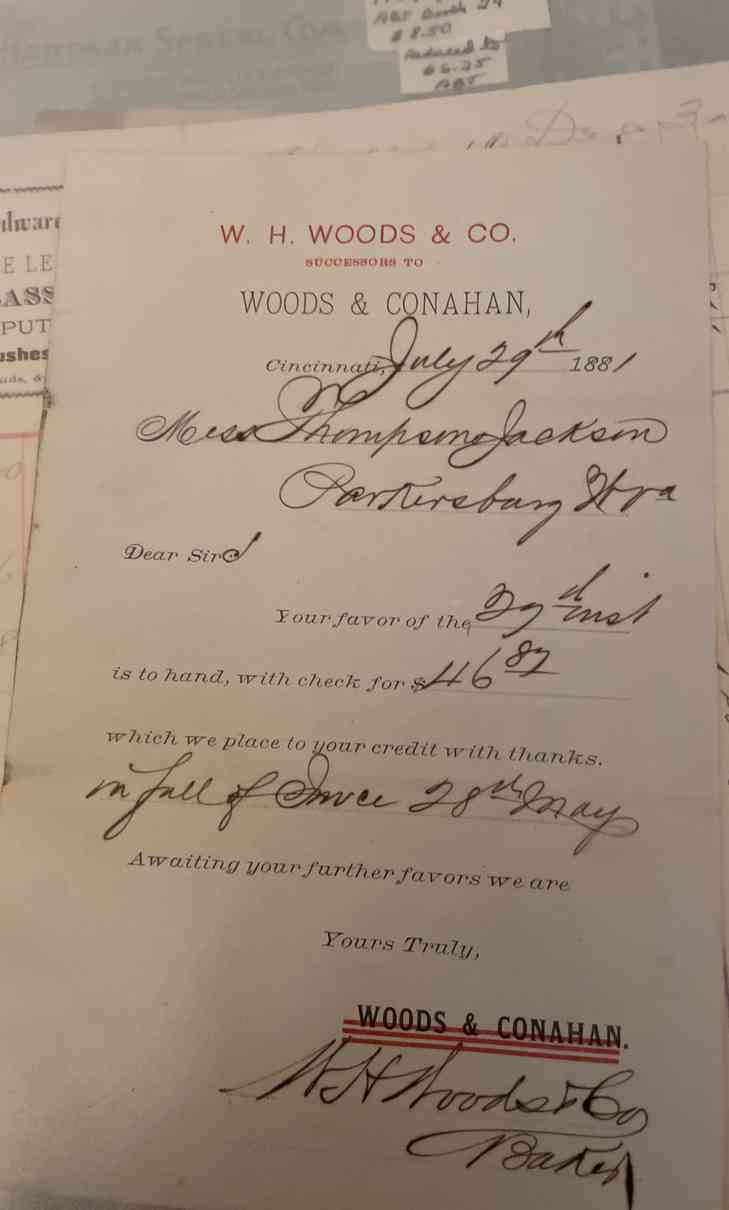 ABT Booth 24
$8.50
Reduced to
$6.25
ABT
W. H. WOODS & CO.
SUCCESSORS TO
WOODS & CONAHAN,
Cincinnati, July 29th 1881
Mess Thompson Jackson
Parkersburg W va
Dear Sir
Your favor of the inst
is to hand, with check for $46 82
which we place to your credit with thanks.
in full of Invce 28th May
Awaiting your further favors we are
Yours Truly,
WOODS & CONAHAN.
W H Woods & Co
Baker
dware
E LE
ASS
PUT
ushes